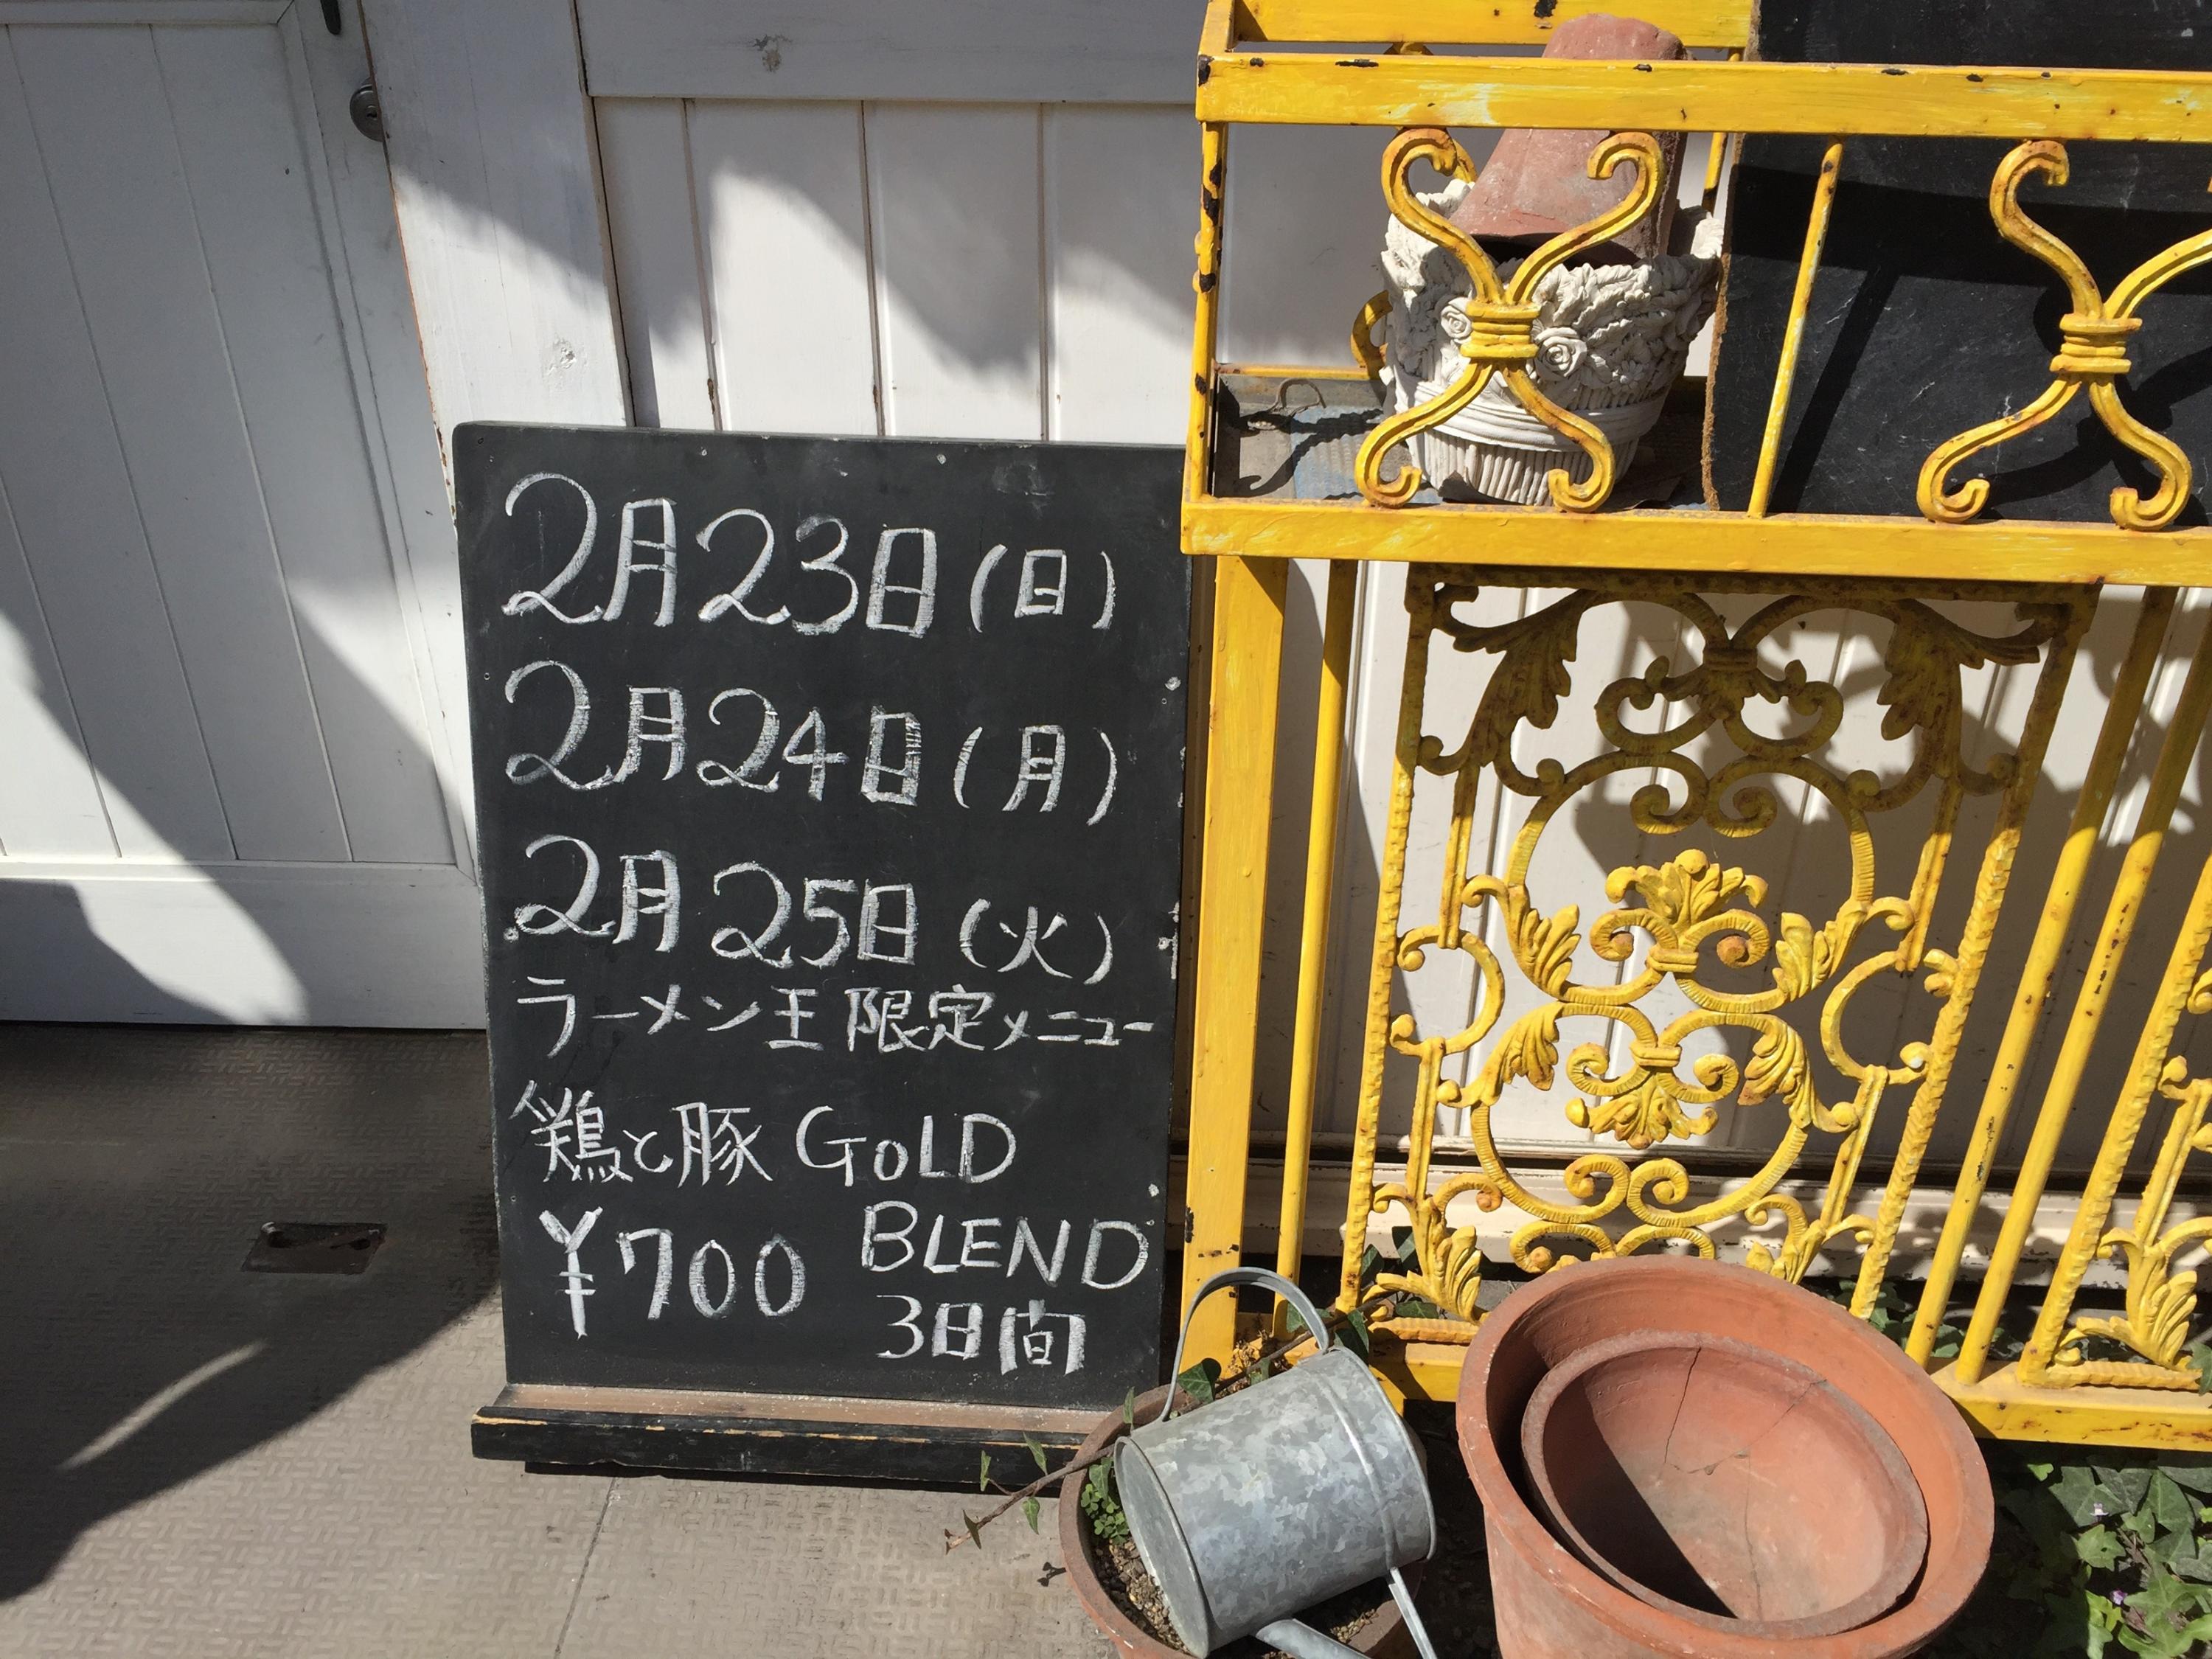 2月23日(日)
2月24日(月)
2月25日(火)
ラーメン王限定メニュー
鶏と豚 GOLD
¥700 BLEND
3日間